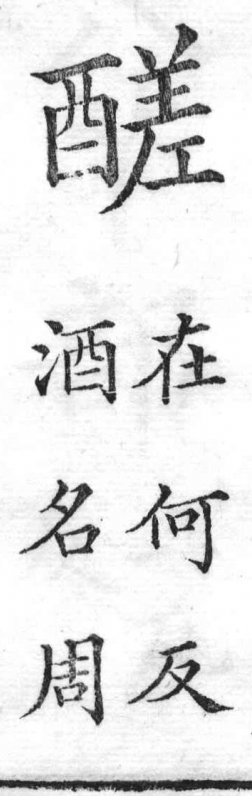 醝
在何反
酒名周